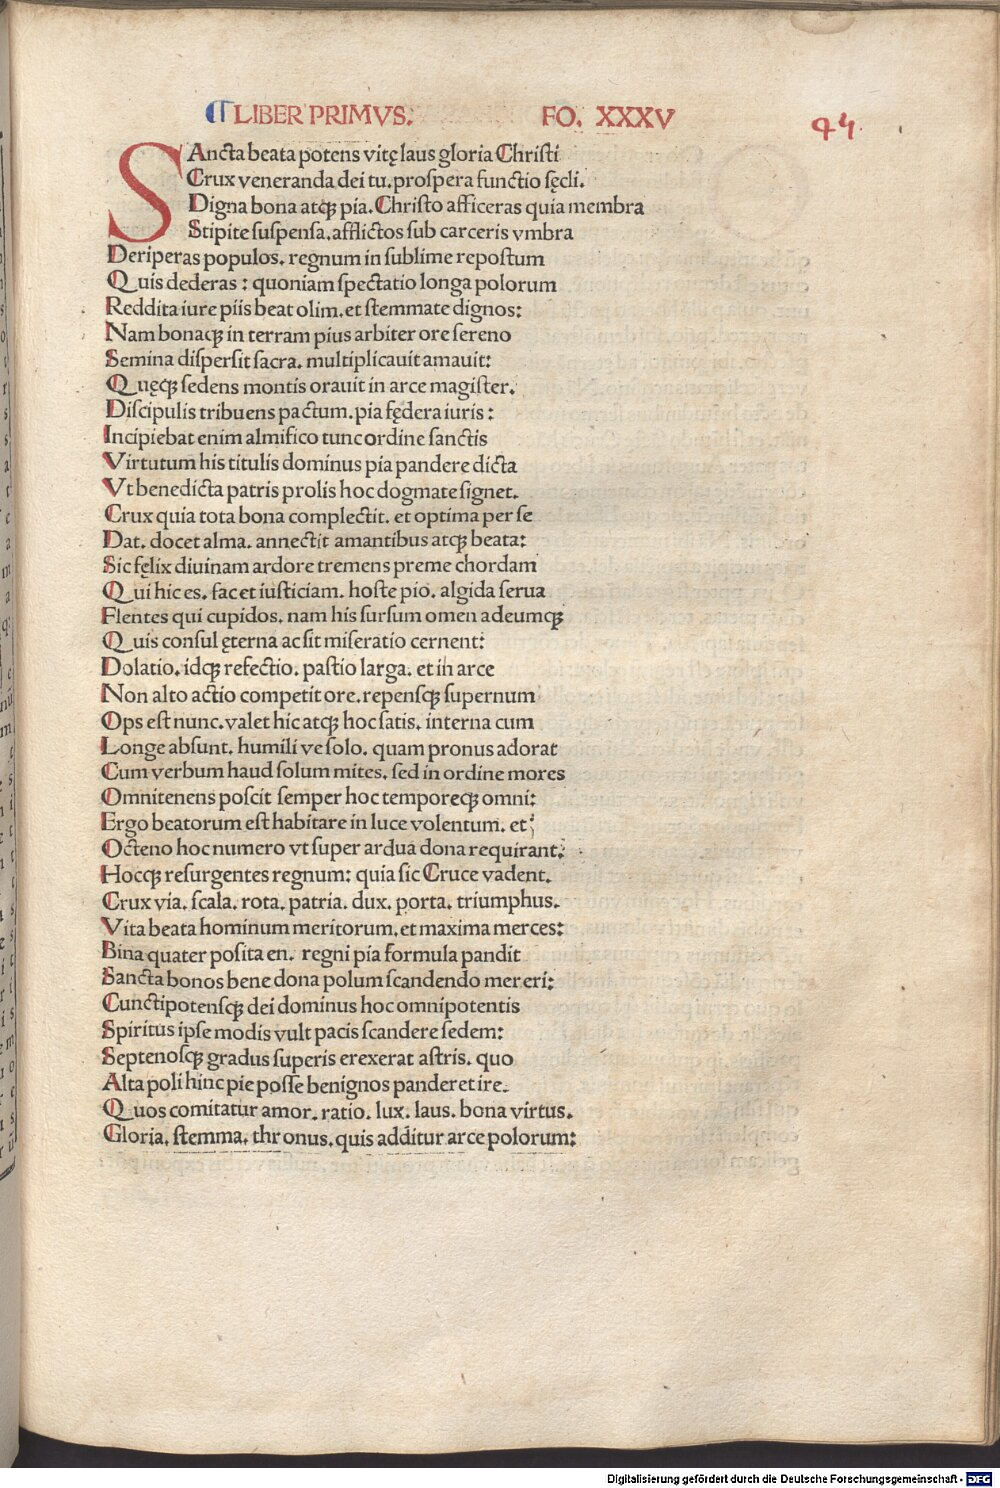 ¶ LIBER PRIMVS. FO. XXXV
SAncta beata potens vitę laus gloria Christi
Crux veneranda dei tu. prospera functio sęcli.
Digna bona atqꝫ pia. Christo afficeras quia membra
Stipite suspensa. afflictos sub carceris vmbra
Deriperas populos. regnum in sublime repostum
Quis dederas : quoniam spectatio longa polorum
Reddita iure piis beat olim. et stemmate dignos:
Nam bonaqꝫ in terram pius arbiter ore sereno
Semina dispersit sacra. multiplicauit amauit:
Quęqꝫ sedens montis orauit in arce magister.
Discipulis tribuens pactum. pia fędera iuris :
Incipiebat enim almifico tunc ordine sanctis
Virtutum his titulis dominus pia pandere dicta
Vt benedicta patris prolis hoc dogmate signet.
Crux quia tota bona complectit. et optima per se
Dat. docet alma. annectit amantibus atqꝫ beata:
Sic fęlix diuinam ardore tremens preme chordam
Qui hic es. fac et iusticiam. hoste pio. algida serua
Flentes qui cupidos. nam his sursum omen adeumqꝫ
Quis consul ęterna ac sit miseratio cernent:
Dolatio. idqꝫ refectio. pastio larga. et in arce
Non alto actio competit ore. repensqꝫ supernum
Ops est nunc. valet hic atqꝫ hoc satis. interna cum
Longe absunt. humili ve solo. quam pronus adorat
Cum verbum haud solum mites. sed in ordine mores
Omnitenens poscit semper hoc temporeqꝫ omni:
Ergo beatorum est habitare in luce volentum. et
Octeno hoc numero vt super ardua dona requirant:
Hocqꝫ resurgentes regnum: quia sic Cruce vadent.
Crux via. scala. rota. patria. dux. porta. triumphus.
Vita beata hominum meritorum. et maxima merces:
Bina quater posita en. regni pia formula pandit
Sancta bonos bene dona polum scandendo mereri:
Cunctipotensqꝫ dei dominus hoc omnipotentis
Spiritus ipse modis vult pacis scandere sedem:
Septenosqꝫ gradus superis erexerat astris. quo
Alta poli hinc pie posse benignos panderet ire.
Quos comitatur amor. ratio. lux. laus. bona virtus.
Gloria. stemma. thronus. quis additur arce polorum:
Digitalisierung gefördert durch die Deutsche Forschungsgemeinschaft - DFG